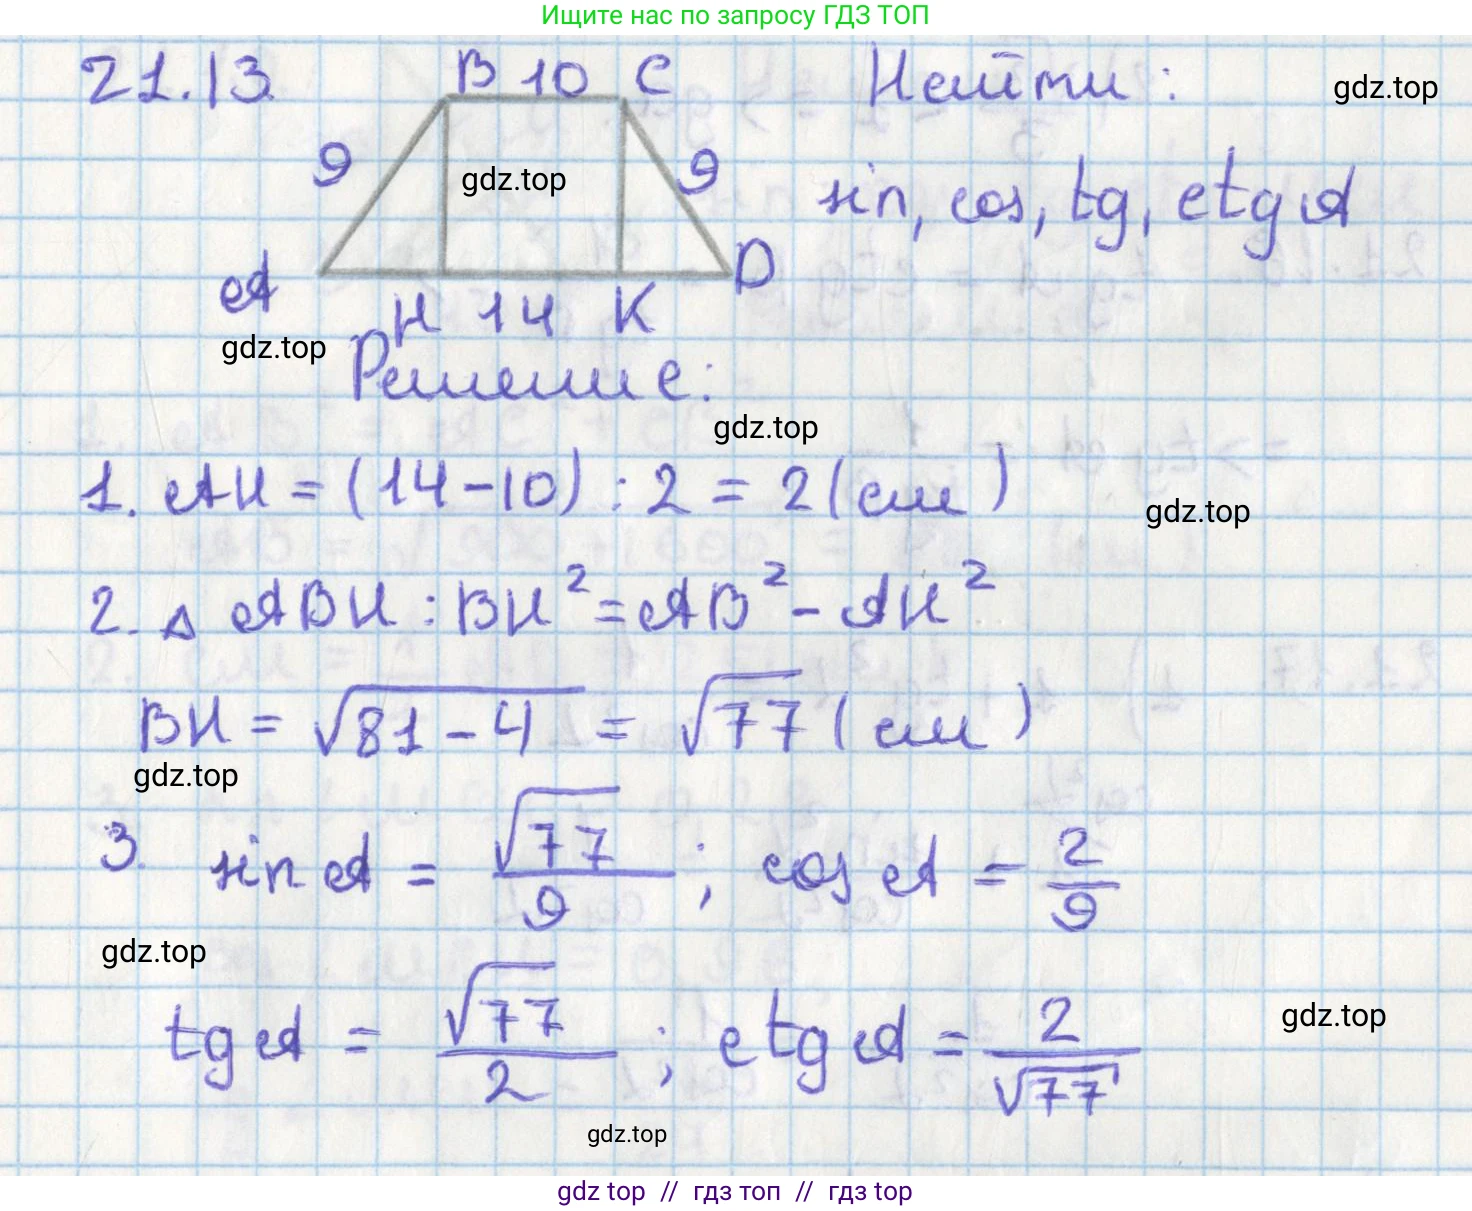 Ищите нас по запросу ГДЗ ТОП
21.13 B 10 C Найти: gdz.top
9 gdz.top 9 sin, cos, tg, ctg A
A H 14 K D
gdz.top
Решение:
gdz.top
1. AH = (14-10) : 2 = 2 (см)
gdz.top
2. △ ABH : BH² = AB² - AH²
BH = √81-4 = √77 (см)
gdz.top
3. sin A = √77/9 ; cos A = 2/9
gdz.top
tg A = √77/2 ; ctg A = 2/√77
gdz.top
gdz.top
gdz top // гдз топ // гдз top